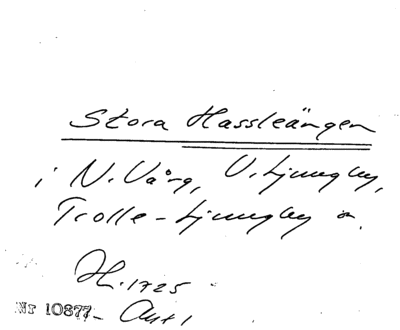 Stora Hassleängen
i N. Vång, V. Ljungby,
Trolle-Ljungby
H. 1725
Nr 10877- Aut 1